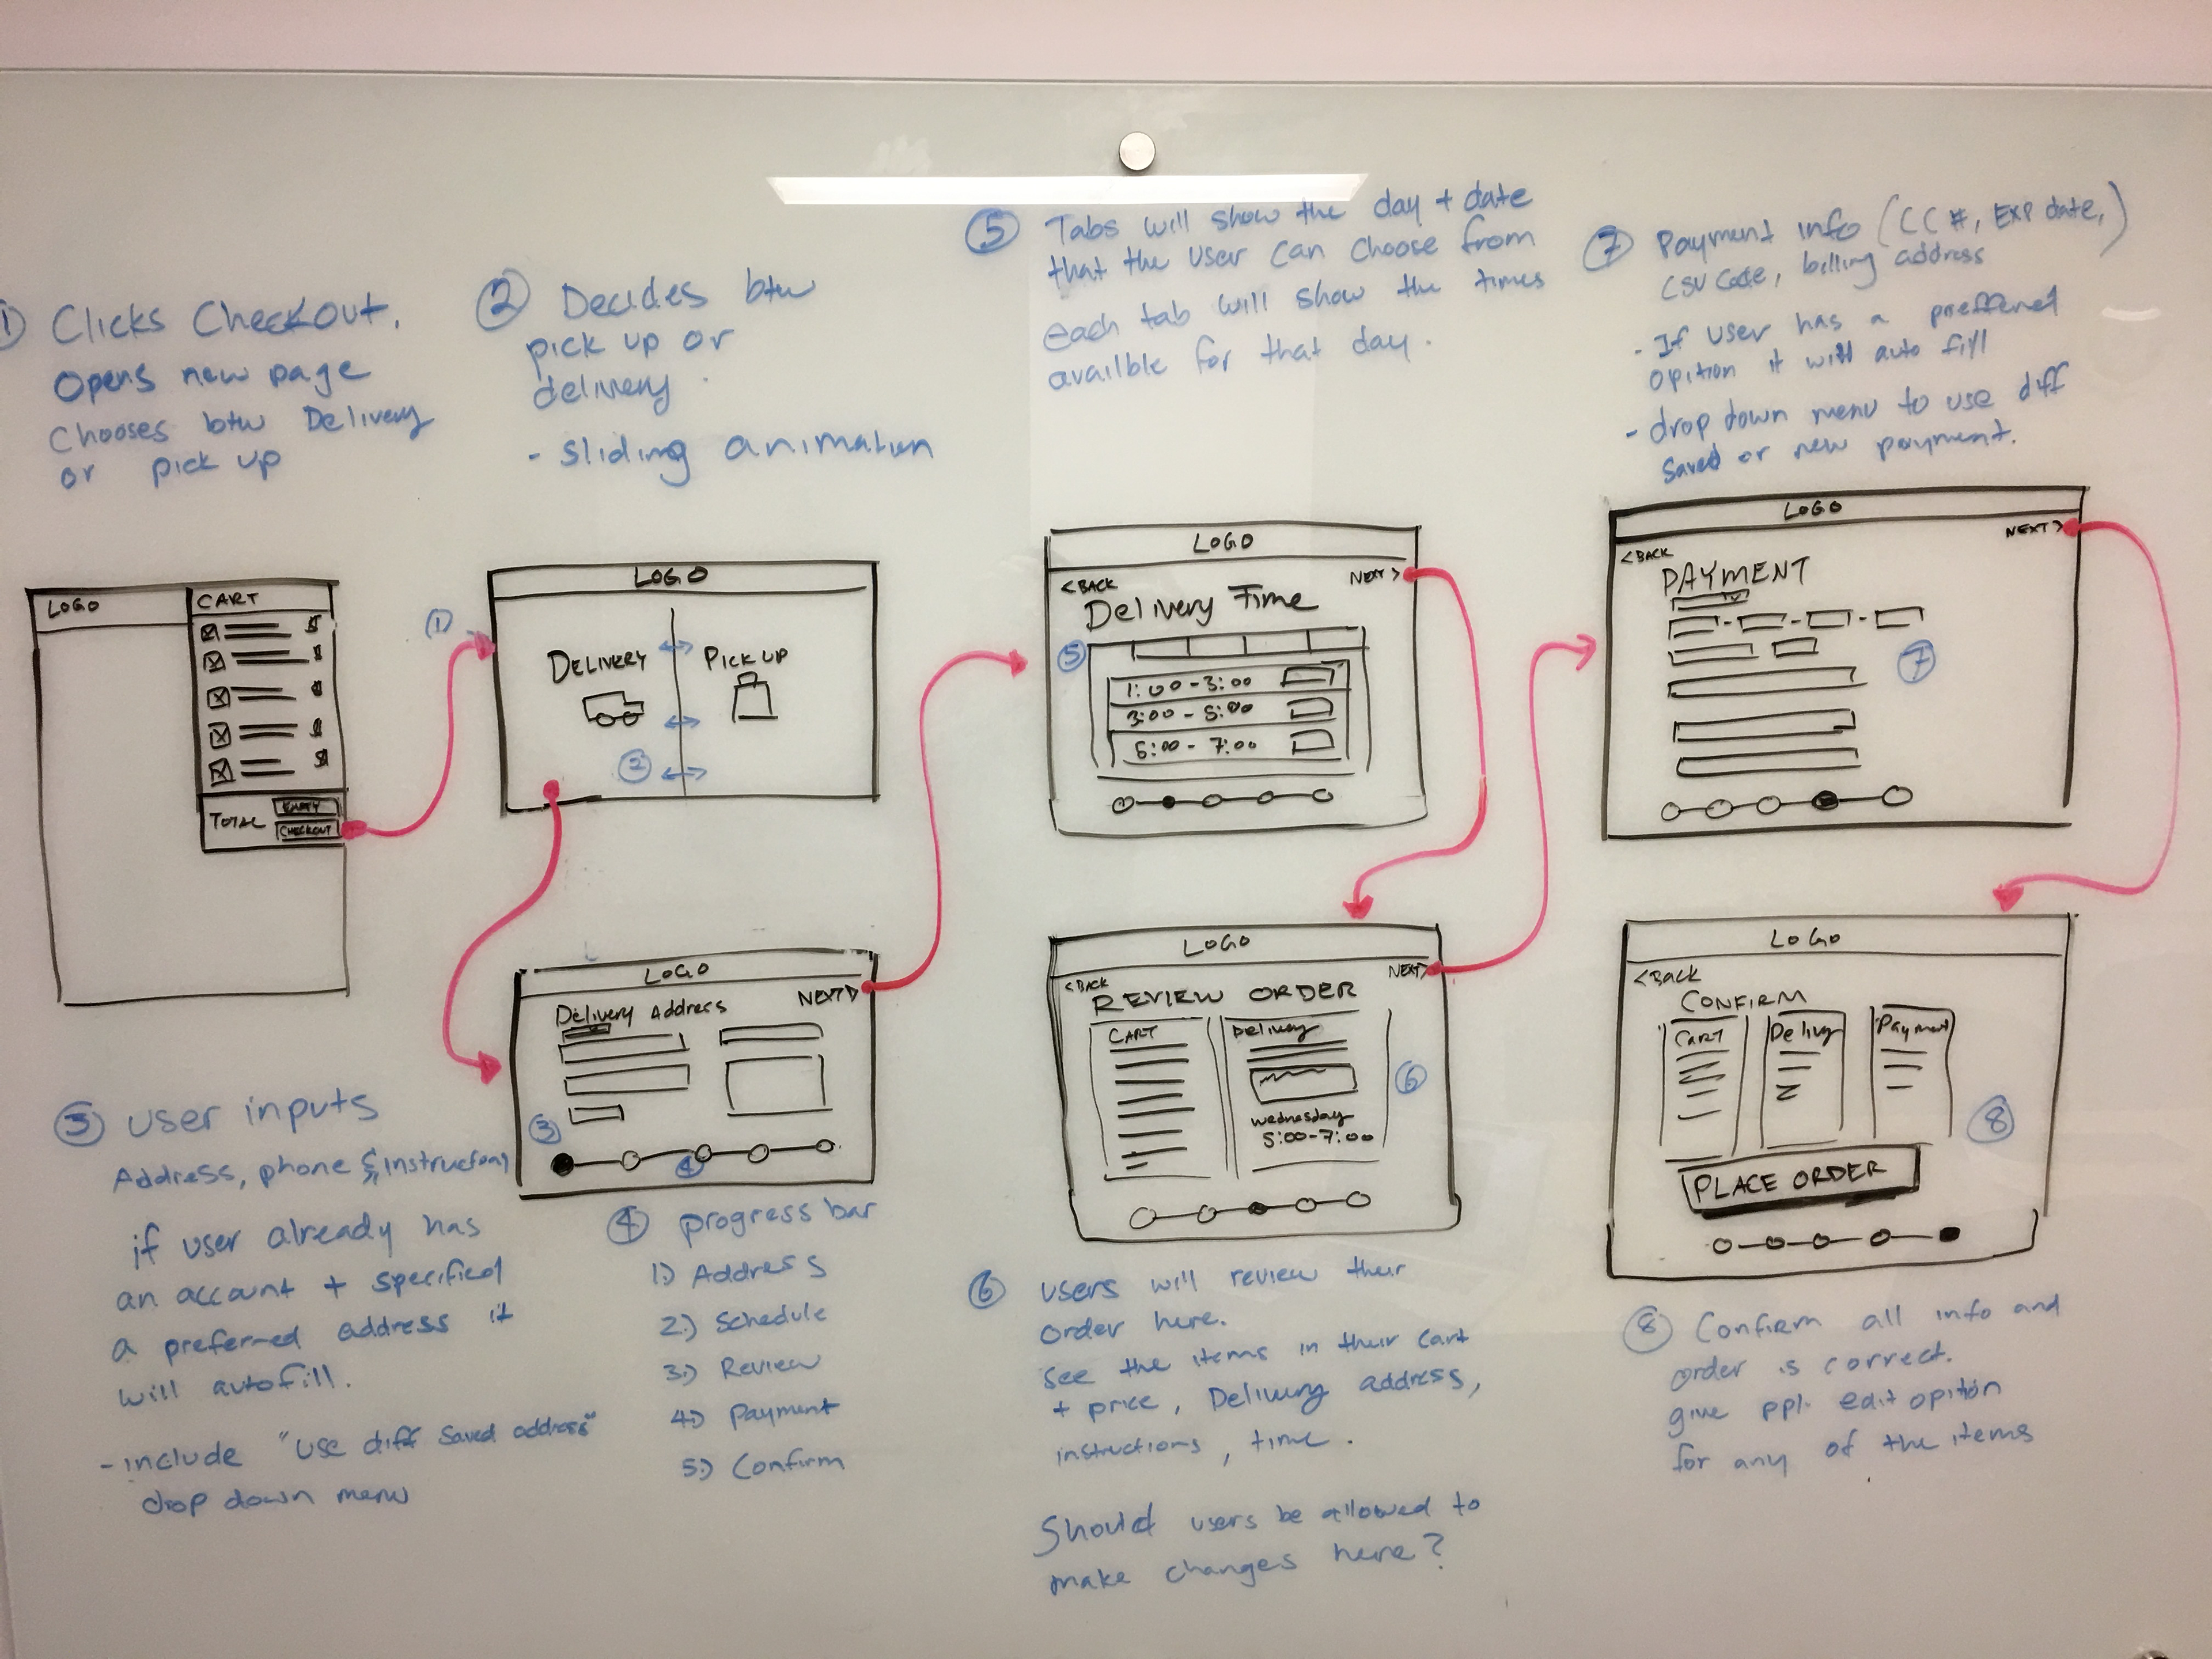 ① Clicks Checkout.
Opens new page
Chooses btw Delivery
or pick up
② Decides btw
pick up or
delivery.
- sliding animation
⑤ Tabs will show the day + date
that the user can choose from
each tab will show the times
availble for that day.
⑦ Payment info (CC #, Exp date,)
CSV code, billing address
- If user has a preffered
opition it will auto fill
- drop down menu to use diff
saved or new payment.
LOGO
CART
TOTAL
EMPTY
CHECKOUT
①
LOGO
DELIVERY
PICK UP
②
LOGO
Delivery Address
NEXT >
③
④
③ user inputs
Address, phone & instructions
if user already has
an account + specified
a preferred address it
will autofill.
- include "use diff saved address"
drop down menu
④ progress bar
1.) Address
2.) Schedule
3.) Review
4.) Payment
5.) Confirm
LOGO
< BACK
NEXT >
Delivery Time
⑤
1:00 - 3:00
3:00 - 5:00
5:00 - 7:00
LOGO
< BACK
NEXT >
REVIEW ORDER
CART
Delivery
wednesday
5:00-7:00
⑥
⑥ users will review their
order here.
see the items in their cart
+ price, Delivery address,
instructions, time.
Should users be allowed to
make changes here?
LOGO
< BACK
NEXT >
PAYMENT
⑦
LOGO
< BACK
CONFIRM
CART
Delivery
Payment
⑧
PLACE ORDER
⑧ Confirm all info and
order is correct.
give ppl. edit opition
for any of the items